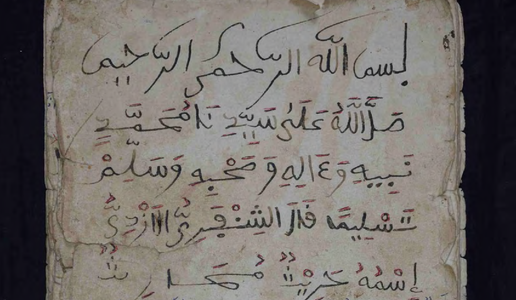 بسم الله الرحمن الرحيم
صَلَّى اللَّهُ عَلَى سَيِّدِنَا مُحَمَّدٍ
نَبِيهِ وَءَالِهِ وَصَحْبِهِ وَسَلِّمْ
تَسْلِيمًا قَالَ الشَّنْفَرِىُّ الْأَزْدِىُّ
إِسْمُهُ